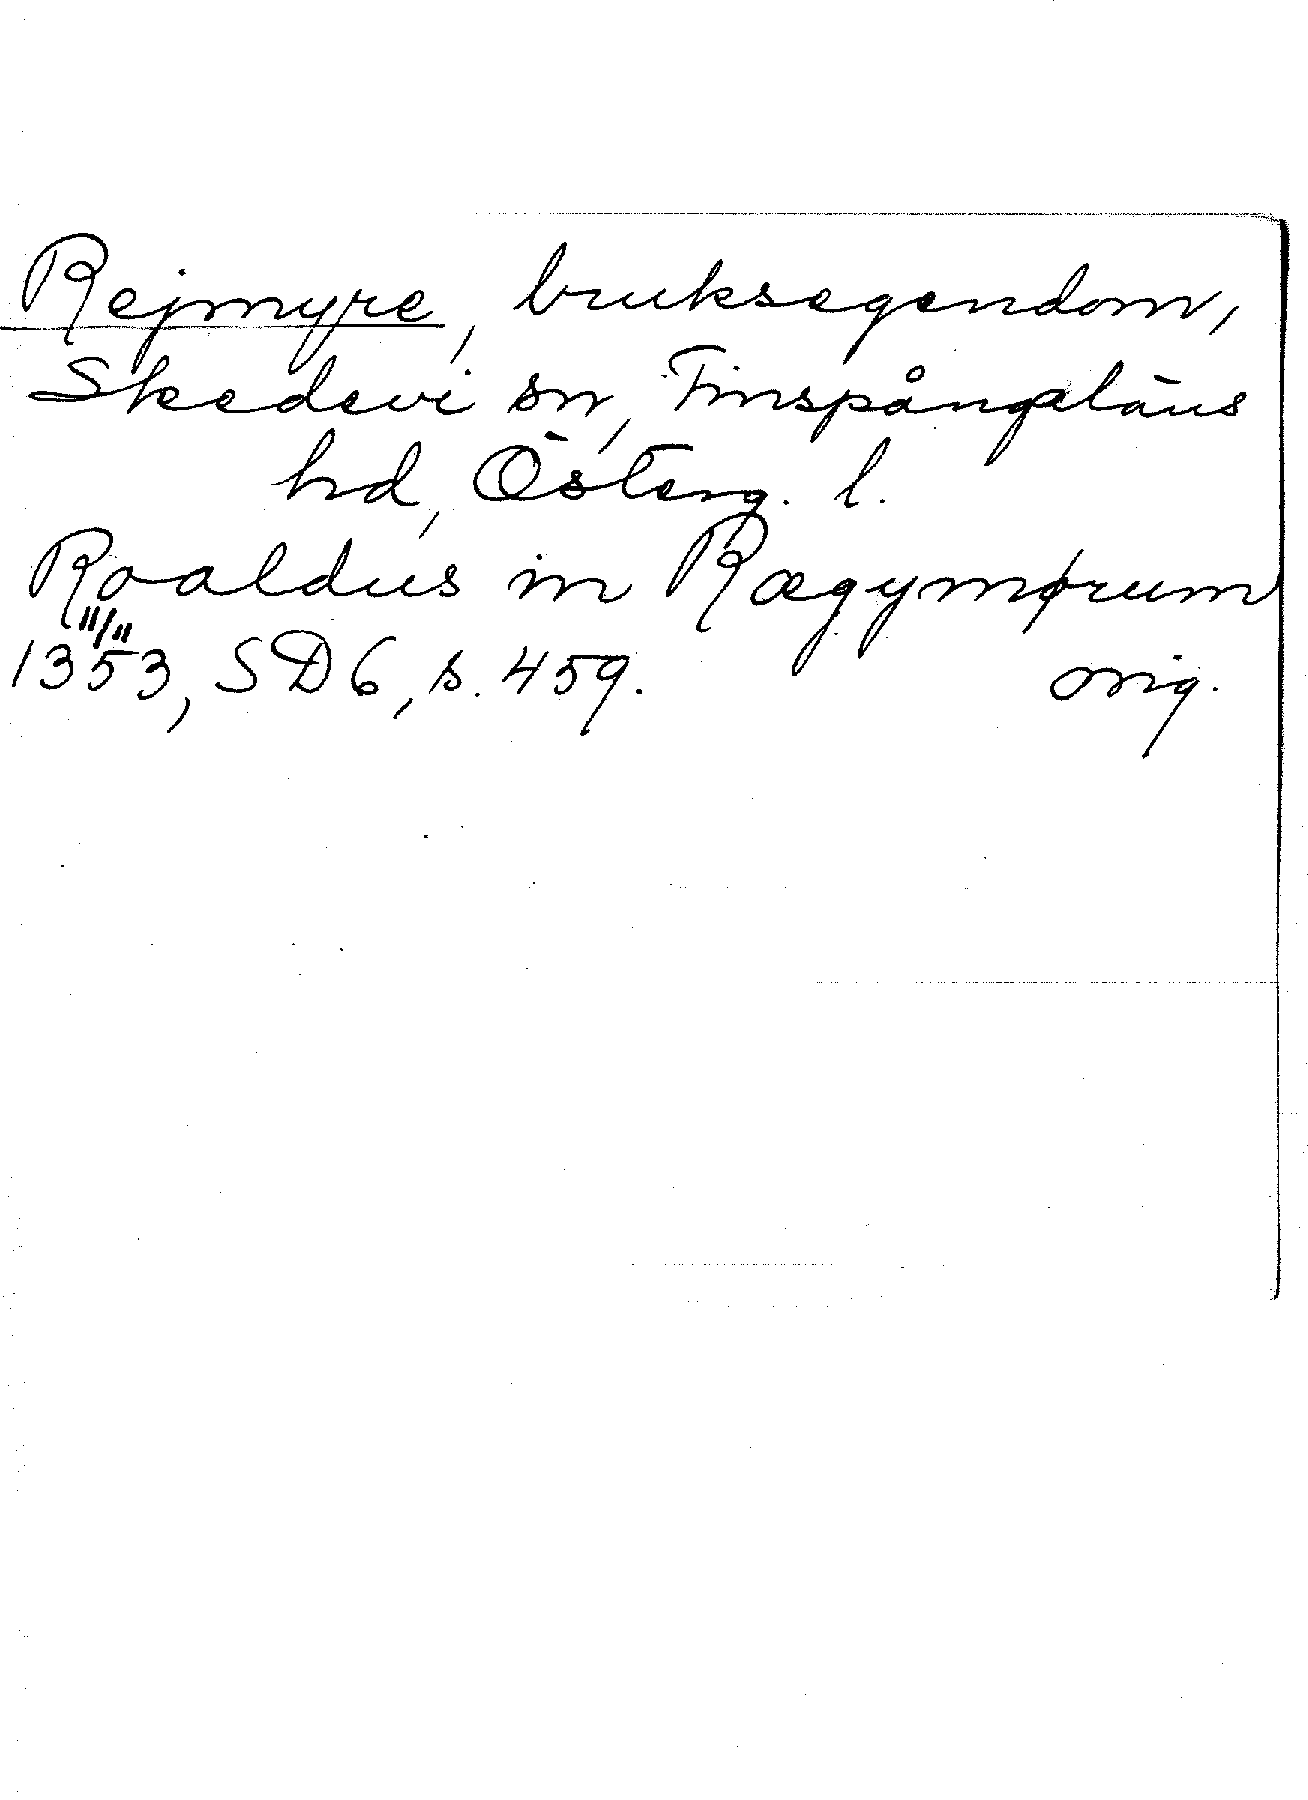 Rejmyre, bruksegendom,
Skedevi sn, Finspångaläns
hd, Österg. l.
Roaldus in Rægymørum
11/11
1353, SD6, s. 459. orig.